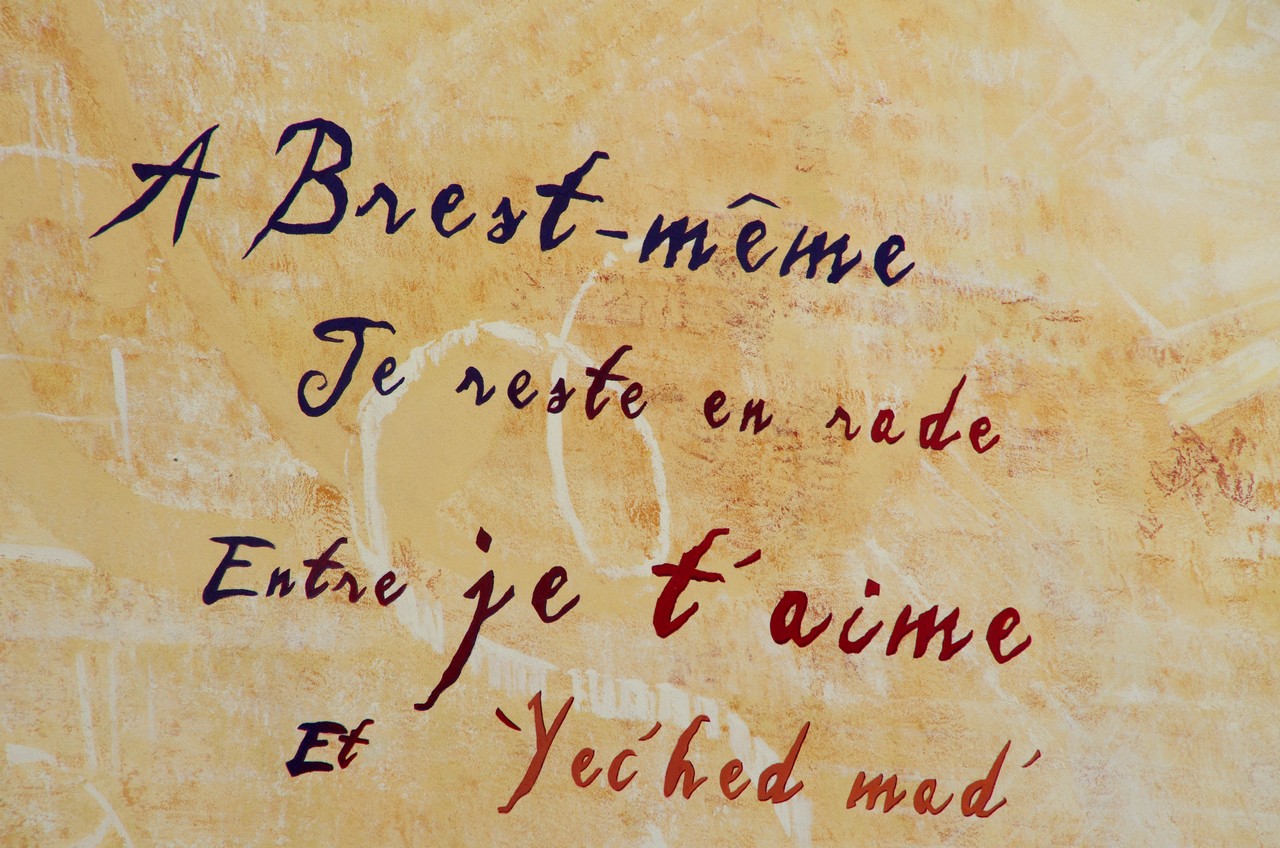 A Brest-même
Je reste en rade
Entre je t'aime
Et 'Yec'hed mad'